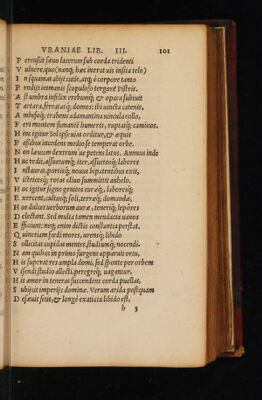 VRANIAE LIB. III. 101
P ercussit sæuo lacerum sub corda tridenti
V ulnere, quo (nanq; hæc inerat uis insita telo)
I n squamas abijt cutis, atq; è corpore tanto
P rodijt immanis scopuloso tergore Pistris.
A st umbra infelix erebumq; & opaca subiuit
T artara, ferratasq; domos; ibi uincta catenis,
A mbesosq; trahens adamantina uincula collo,
A eri montem fumantẽ humeris, ruptasq; caminos.
H inc igitur Sol ipse uias orditur, & æquis
P assibus incedens medio se temperat orbe.
N on lænum dextrum'ue petens latus. Annus inde
H uc redit, assuetumq; iter, assuetosq; labores
I nstaurat, portisq; nouus bipatentibus exit,
V ictricesq; rotas cliuo summittit aohelo.
H oc igitur signo genitos curæq;, laboresq;
E xercent, cultusq; soli, terræq; domandæ,
H os dulces uerborum auræ, teneriq; lepôres
D electant. Sed multa tamen mendacia uanos
E fficiunt: neq; enim dictis constantia perstat,
Q uinetiam fœdi mores, urensq; libido
S ollicitat cupidas mentes, studiumq; nocendi.
N am quibus in primo surgens apparuit ortu,
H is superat res ampla domi, sed sponte per orbem
V isendi studio allecti, peregreq; uagantur.
H is amor in teneras succendens corda puellas,
S ubijcit imperijs dominæ. Verum arida postquam
D esæuit sitis, & longè exatiata libido est,
h 3